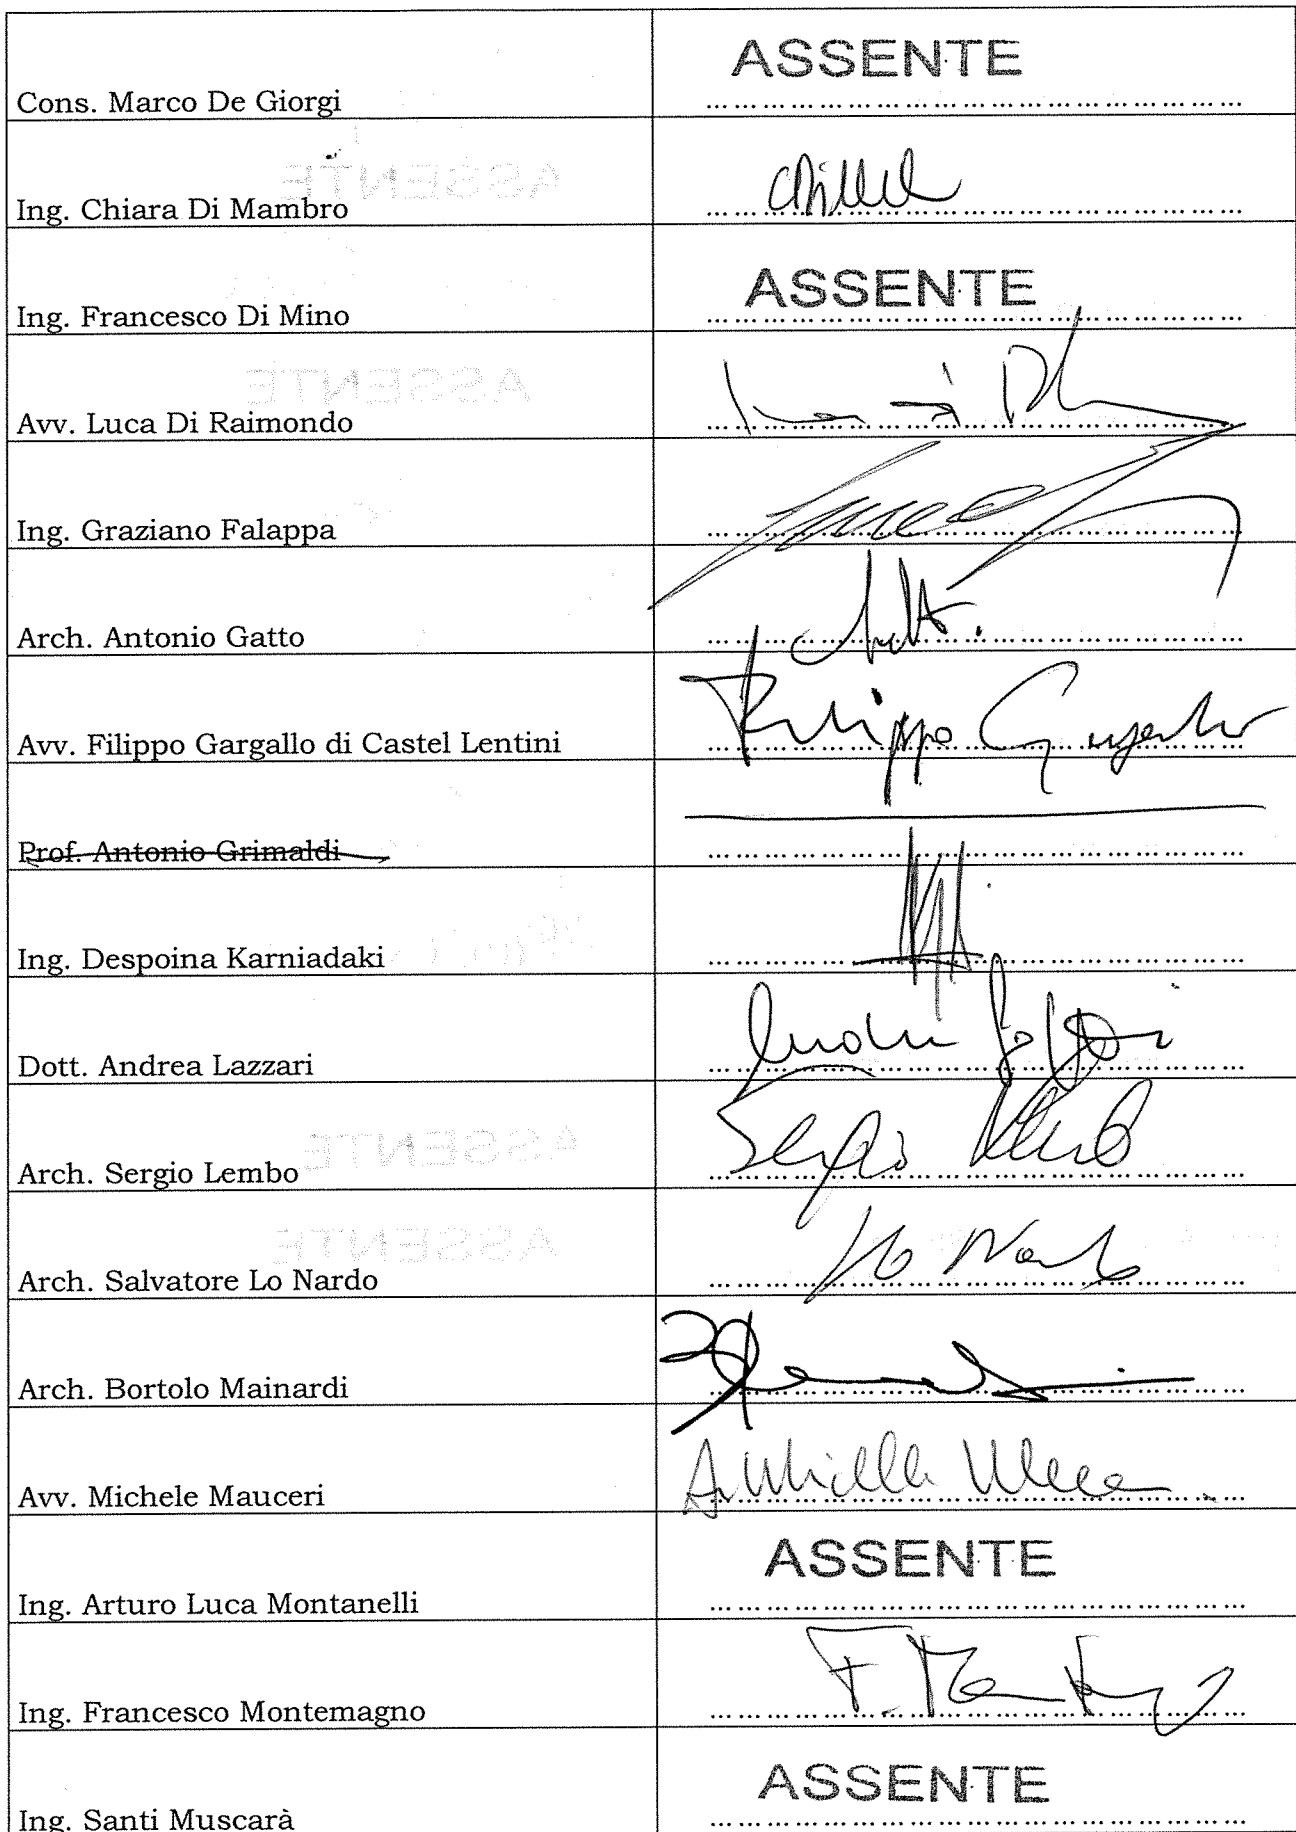 ASSENTE
Cons. Marco De Giorgi
Ing. Chiara Di Mambro
ASSENTE
Ing. Francesco Di Mino
Avv. Luca Di Raimondo
Ing. Graziano Falappa
Arch. Antonio Gatto
Avv. Filippo Gargallo di Castel Lentini Filippo Gargallo
Prof. Antonio Grimaldi
Ing. Despoina Karniadaki
Dott. Andrea Lazzari
Arch. Sergio Lembo Sergio Lembo
Arch. Salvatore Lo Nardo Lo Nardo
Arch. Bortolo Mainardi
Avv. Michele Mauceri
ASSENTE
Ing. Arturo Luca Montanelli
Ing. Francesco Montemagno
ASSENTE
Ing. Santi Muscarà